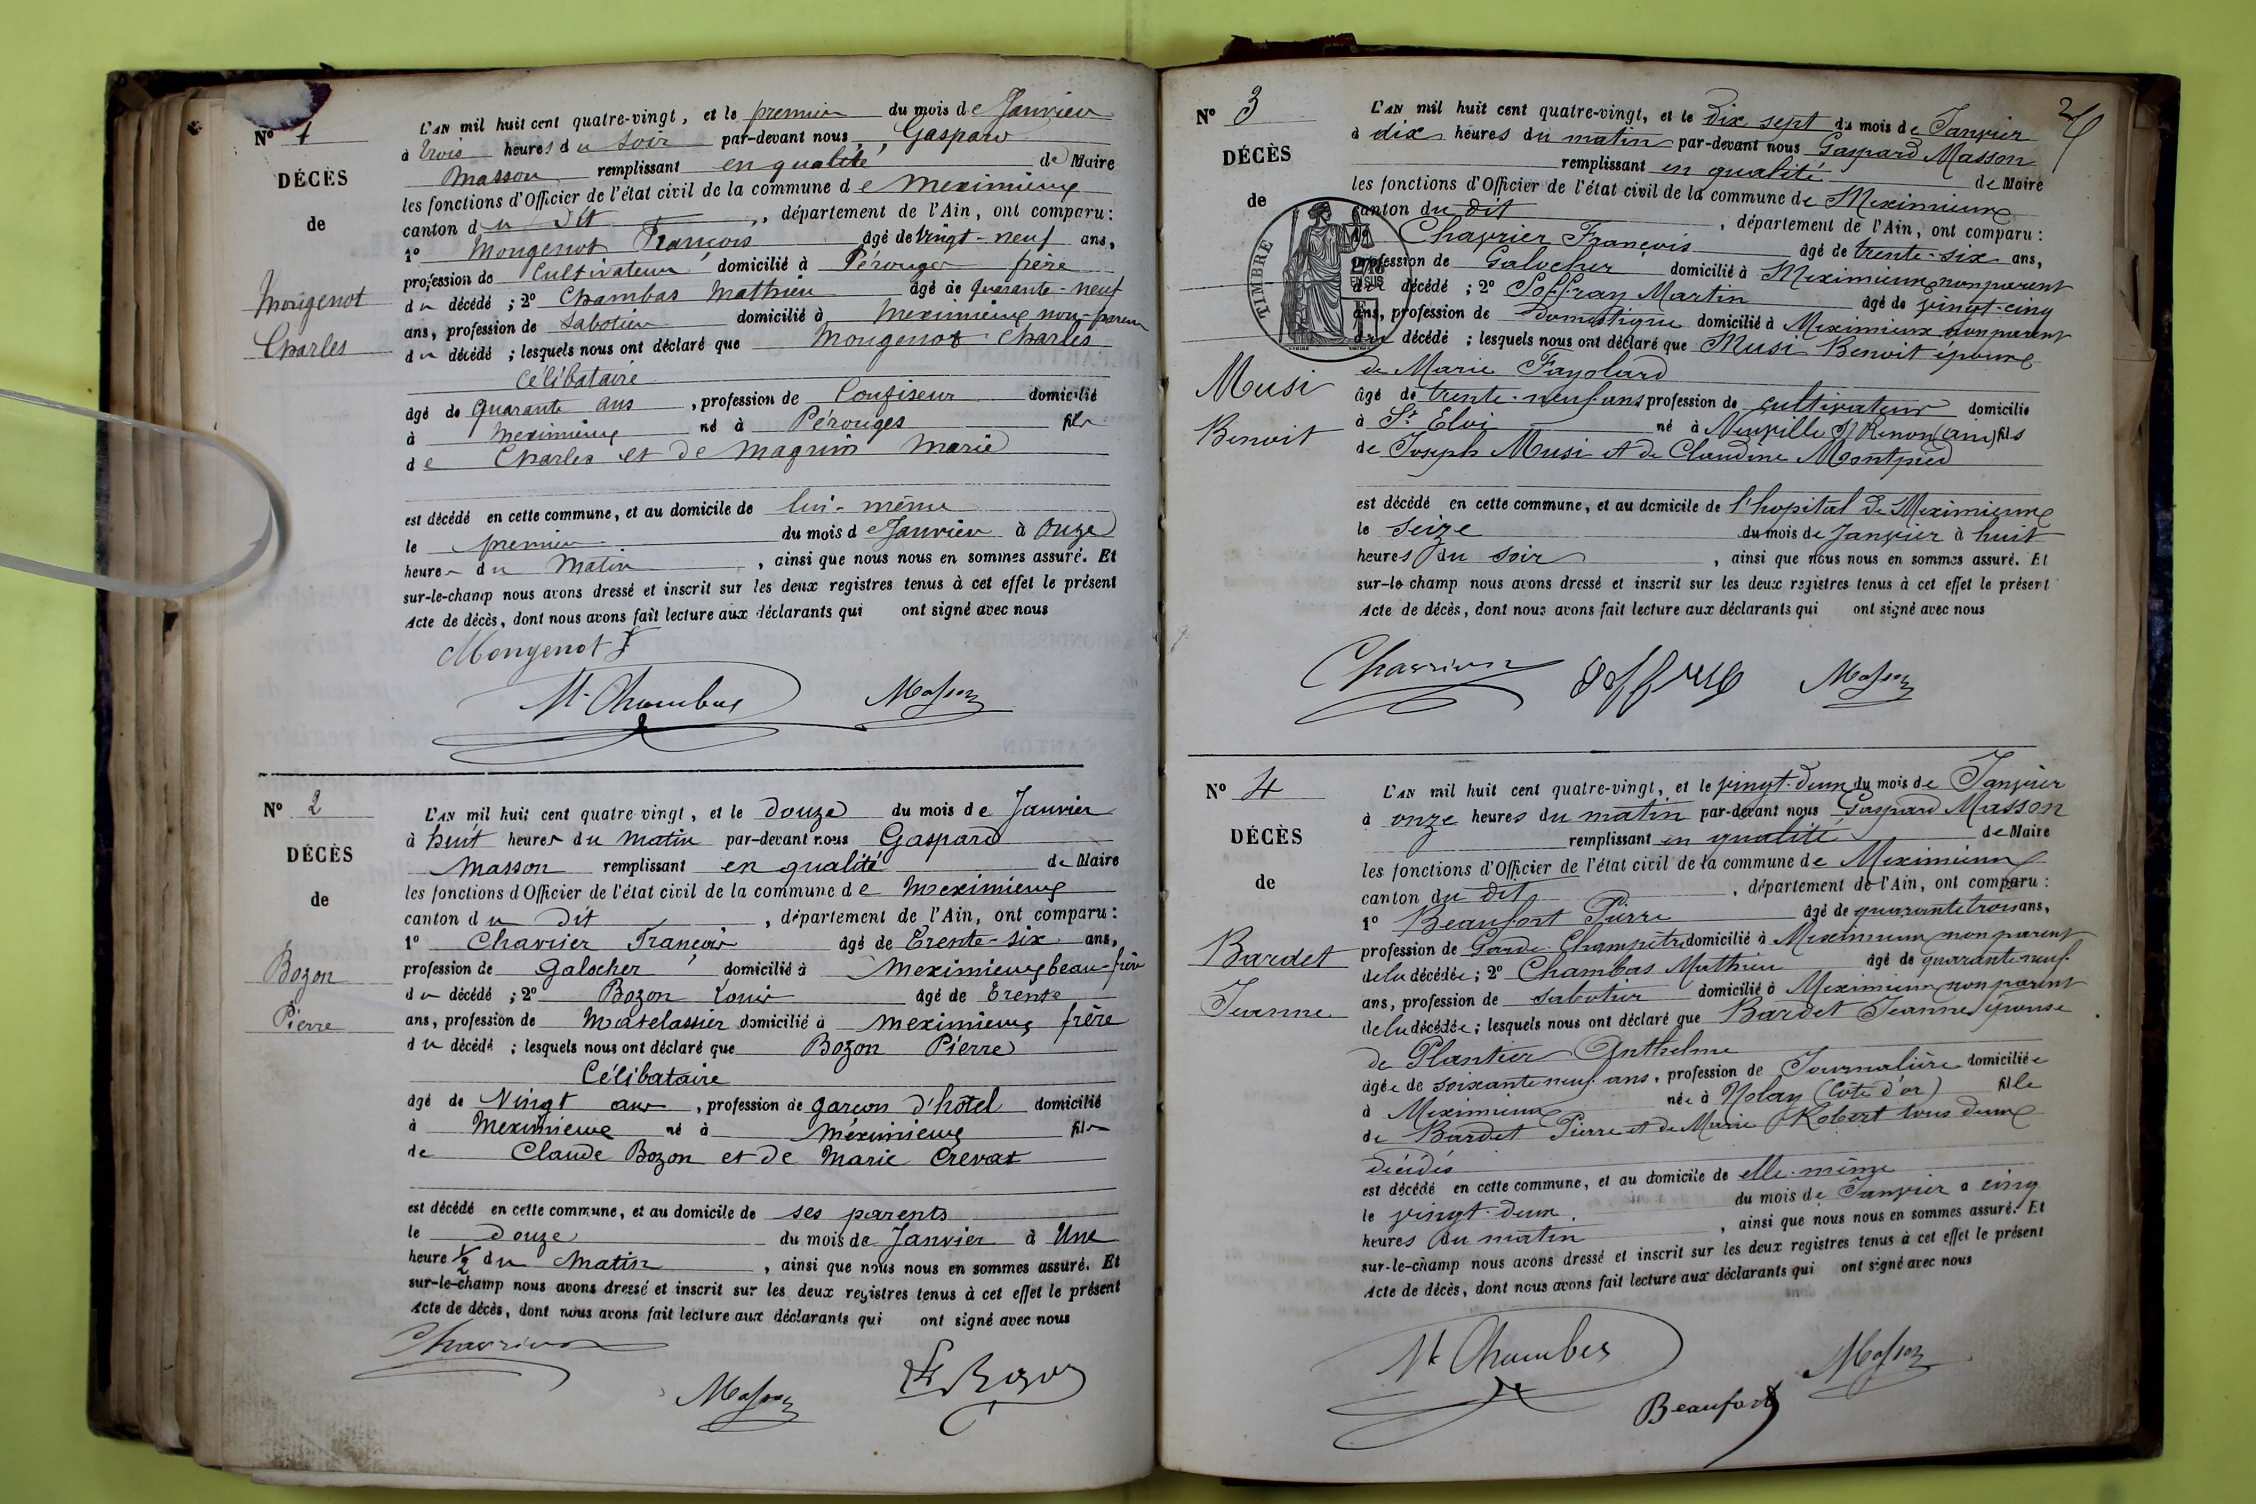 N° 1
DÉCÈS
de
Mougenot
Charles
L'AN mil huit cent quatre-vingt, et le premier du mois de Janvier
à trois heures du soir par-devant nous, Gaspard
Masson remplissant en qualité de Maire
les fonctions d'Officier de l'état civil de la commune de Meximieux
canton du dit, département de l'Ain, ont comparu :
1° Mougenot François âgé de vingt-neuf ans,
profession de Cultivateur domicilié à Pérouges frère
du décédé ; 2° Chambas Mathieu âgé de quarante-neuf
ans, profession de Sabotier domicilié à Meximieux non-parent
du décédé ; lesquels nous ont déclaré que Mougenot Charles
Célibataire
âgé de quarante ans, profession de Confiseur domicilié
à Meximieux né à Pérouges fils
de Charles et de Magnin Marie
est décédé en cette commune, et au domicile de lui-même
le premier du mois de Janvier à onze
heures du Matin, ainsi que nous nous en sommes assuré. Et
sur-le-champ nous avons dressé et inscrit sur les deux registres tenus à cet effet le présent
Acte de décès, dont nous avons fait lecture aux déclarants qui ont signé avec nous
Mougenot F
M. Chambas Masson
N° 2
DÉCÈS
de
Bozon
Pierre
L'AN mil huit cent quatre-vingt, et le douze du mois de Janvier
à huit heures du matin par-devant nous Gaspard
Masson remplissant en qualité de Maire
les fonctions d'Officier de l'état civil de la commune de Meximieux
canton du dit, département de l'Ain, ont comparu :
1° Chavrier François âgé de trente-six ans,
profession de Galocher domicilié à Meximieux beau-frère
du décédé ; 2° Bozon Louis âgé de trente
ans, profession de Matelassier domicilié à Meximieux frère
du décédé ; lesquels nous ont déclaré que Bozon Pierre
Célibataire
âgé de Vingt ans, profession de garçon d'hôtel domicilié
à Meximieux né à Méximieux fils
de Claude Bozon et de Marie Crevat
est décédé en cette commune, et au domicile de ses parents
le douze du mois de Janvier à Une
heure 1/2 du Matin, ainsi que nous nous en sommes assuré. Et
sur-le-champ nous avons dressé et inscrit sur les deux registres tenus à cet effet le présent
Acte de décès, dont nous avons fait lecture aux déclarants qui ont signé avec nous
Chavrier
Masson Bozon
N° 3
DÉCÈS
de
TIMBRE
Musi
Benoit
L'AN mil huit cent quatre-vingt, et le dix sept du mois de Janvier
à dix heures du matin par-devant nous Gaspard Masson
remplissant en qualité de Maire
les fonctions d'Officier de l'état civil de la commune de Meximieux
canton du dit, département de l'Ain, ont comparu :
Chavrier François âgé de trente-six ans,
profession de Galocher domicilié à Meximieux non parent
du décédé ; 2° Soffray Martin âgé de vingt-cinq
ans, profession de Domestique domicilié à Meximieux non parent
du décédé ; lesquels nous ont déclaré que Musi Benoit époux
de Marie Fayolard
âgé de trente-neuf ans profession de cultivateur domicilié
à St Eloi né à Neuville s/ Renon (Ain) fils
de Joseph Musi et de Claudine Montpied
est décédé en cette commune, et au domicile de l'hopital de Meximieux
le seize du mois de Janvier à huit
heures du soir, ainsi que nous nous en sommes assuré. Et
sur-le-champ nous avons dressé et inscrit sur les deux registres tenus à cet effet le présent
Acte de décès, dont nous avons fait lecture aux déclarants qui ont signé avec nous
Chavrier Masson
N° 4
DÉCÈS
de
Bardet
Jeanne
L'AN mil huit cent quatre-vingt, et le vingt-deux du mois de Janvier
à onze heures du matin par-devant nous Gaspard Masson
remplissant en qualité de Maire
les fonctions d'Officier de l'état civil de la commune de Meximieux
canton du dit, département de l'Ain, ont comparu :
1° Beaufort Pierre âgé de quarante trois ans,
profession de Garde-Champêtre domicilié à Meximieux non parent
de la décédée ; 2° Chambas Mathieu âgé de quarante-neuf
ans, profession de sabotier domicilié à Meximieux non parent
de la décédée ; lesquels nous ont déclaré que Bardet Jeanne épouse
de Plantier Anthelme
âgée de soixante-neuf ans, profession de Journalière domiciliée
à Meximieux née à Nolay (Côte d'or) fille
de Bardet Pierre et de Marie Robert tous deux
décédés
est décédé en cette commune, et au domicile de elle-même
le vingt-deux du mois de Janvier à cinq
heures du matin, ainsi que nous nous en sommes assuré. Et
sur-le-champ nous avons dressé et inscrit sur les deux registres tenus à cet effet le présent
Acte de décès, dont nous avons fait lecture aux déclarants qui ont signé avec nous
M. Chambas Masson
Beaufort